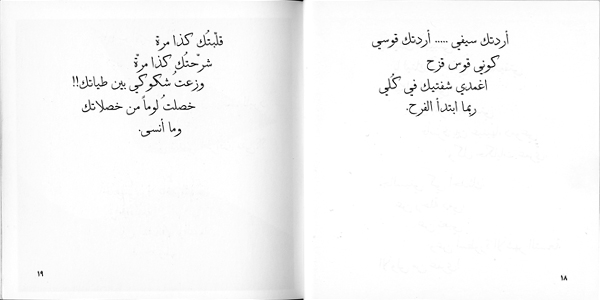 أردتك سيفي ..... أردتك قوسي
كوني قوس قزح
اغمدي شفتيك في كُلي
ربما ابتدأ الفرح.
١٨
قلّبتُك كذا مرة
شرحْتُك كذا مرْة
وزعتُ شكوكي بين طياتك!!
خصلتُ لوماً من خصلاتك
وما أنسى.
١٩